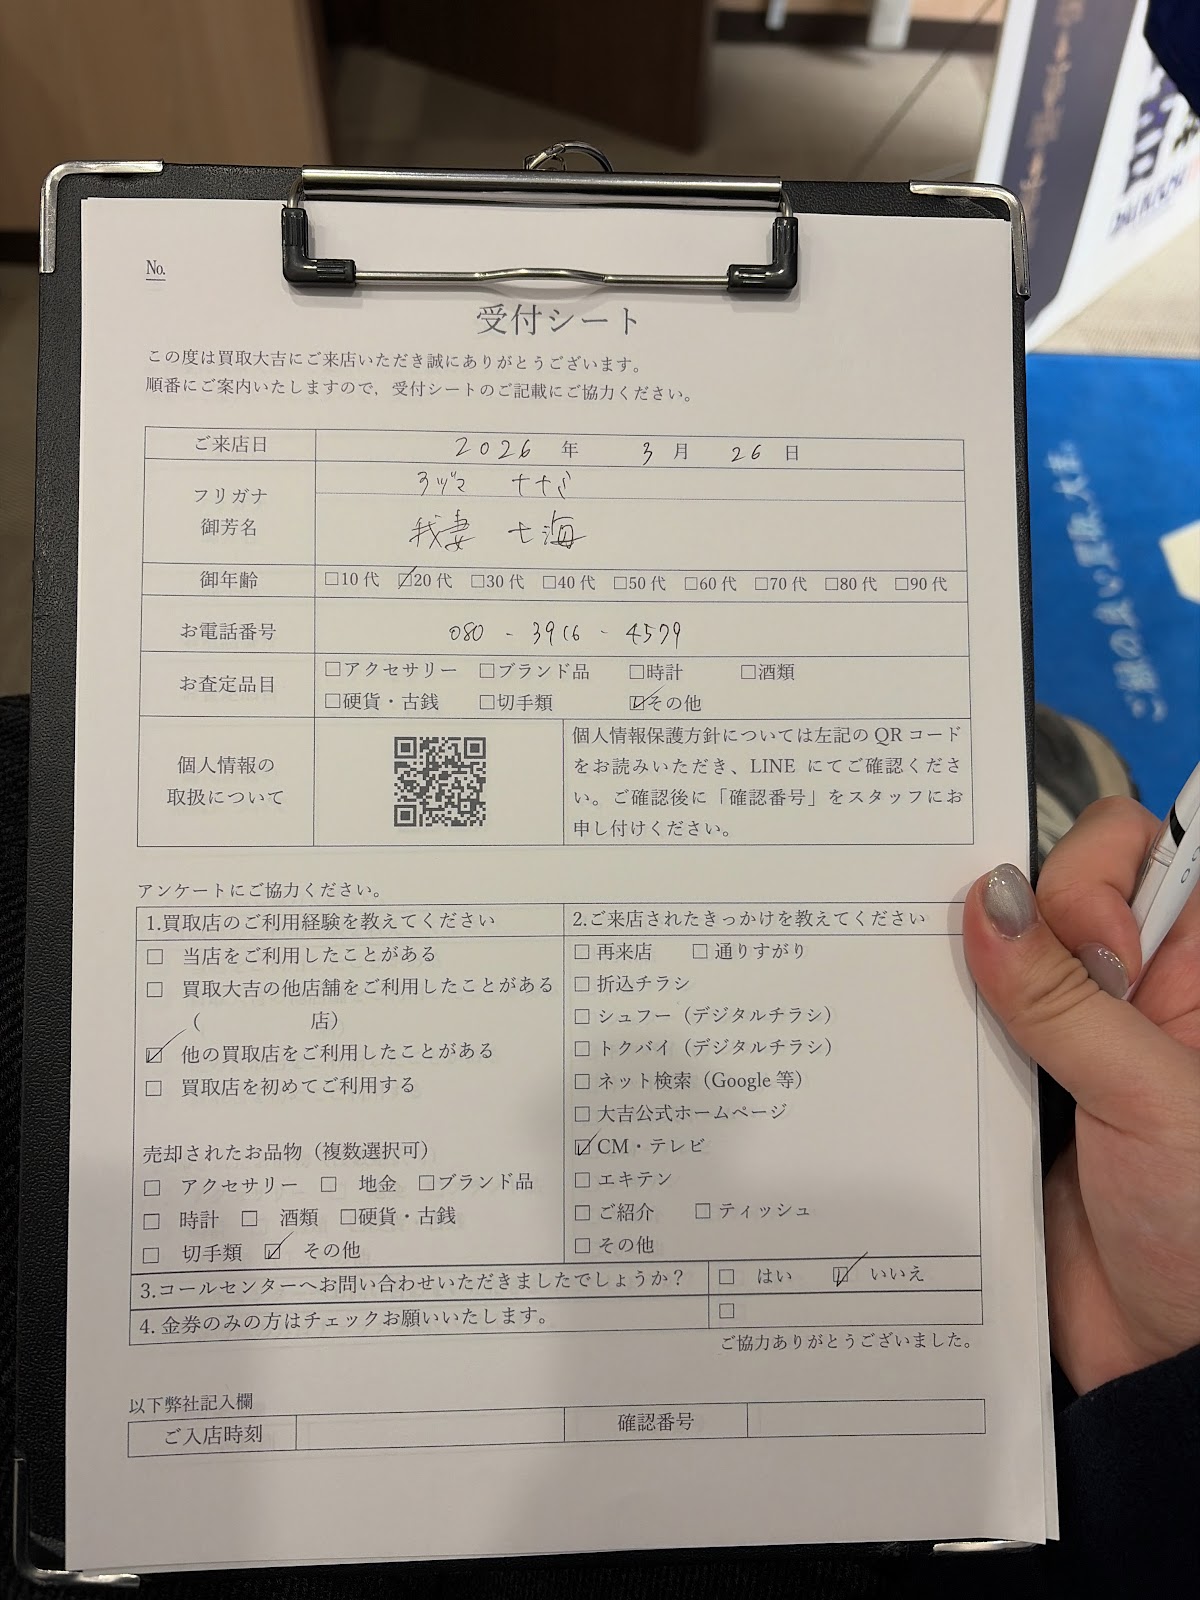 No.
受付シート
この度は買取大吉にご来店いただき誠にありがとうございます。
順番にご案内いたしますので、受付シートのご記載にご協力ください。
ご来店日 2026 年 3 月 26 日
フリガナ ヲヅマ ナナミ
御芳名 我妻 七海
御年齢 □10 代 ☑20 代 □30 代 □40 代 □50 代 □60 代 □70 代 □80 代 □90 代
お電話番号 080 - 3916 - 4579
お査定品目 □アクセサリー □ブランド品 □時計 □酒類
□硬貨・古銭 □切手類 ☑その他
個人情報の
取扱について
個人情報保護方針については左記の QR コード
をお読みいただき、LINE にてご確認くださ
い。ご確認後に「確認番号」をスタッフにお
申し付けください。
アンケートにご協力ください。
1.買取店のご利用経験を教えてください
□ 当店をご利用したことがある
□ 買取大吉の他店舗をご利用したことがある
（ 店）
☑ 他の買取店をご利用したことがある
□ 買取店を初めてご利用する
売却されたお品物（複数選択可）
□ アクセサリー □ 地金 □ブランド品
□ 時計 □ 酒類 □硬貨・古銭
□ 切手類 ☑ その他
2.ご来店されたきっかけを教えてください
□ 再来店 □ 通りすがり
□ 折込チラシ
□ シュフー（デジタルチラシ）
□ トクバイ（デジタルチラシ）
□ ネット検索（Google 等）
□ 大吉公式ホームページ
☑ CM・テレビ
□ エキテン
□ ご紹介 □ ティッシュ
□ その他
3.コールセンターへお問い合わせいただきましたでしょうか？ □ はい ☑ いいえ
4. 金券のみの方はチェックお願いいたします。 □
ご協力ありがとうございました。
以下弊社記入欄
ご入店時刻 確認番号